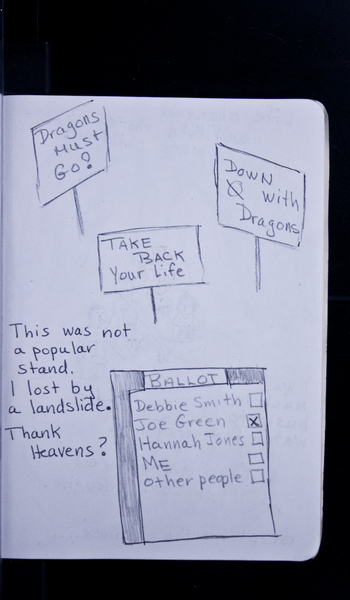 Dragons
Must
Go?
DOWN
with
Dragons
TAKE
BACK
Your Life
This was not
a popular
stand.
I lost by
a landslide.
Thank
Heavens?
BALLOT
Debbie Smith
Joe Green
Hannah Jones
ME
other people